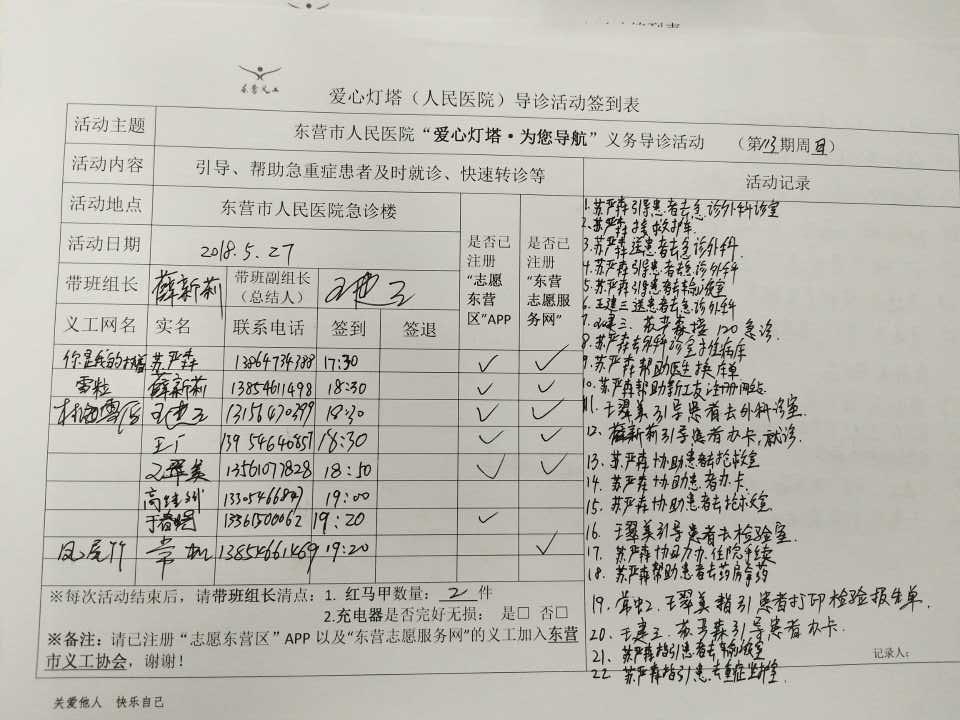 东营义工
爱心灯塔（人民医院）导诊活动签到表
活动主题 东营市人民医院“爱心灯塔·为您导航”义务导诊活动 （第113期周日）
活动内容 引导、帮助急重症患者及时就诊、快速转诊等 活动记录
活动地点 东营市人民医院急诊楼
活动日期 2018.5.27
是否已注册“志愿东营区”APP
是否已注册“东营志愿服务网”
带班组长 薛新莉 带班副组长（总结人） 王建三
义工网名 实名 联系电话 签到 签退
你是我的 苏严森 13864734388 17:30 ✓ ✓
雪粒 薛新莉 13854611498 18:30 ✓ ✓
王建三 13156470399 18:30 ✓ ✓
王广 13954640857 18:30 ✓ ✓
王翠美 13561077828 18:50 ✓ ✓
高 19:00
于春 13361500062 19:20 ✓
凤尾竹 常虹 13854661469 19:20 ✓
1.苏严森引导患者去急诊外科诊室
2.苏严森接救护车
3.苏严森送患者去急诊外科
4.苏严森引导患者去急诊外科
5.苏严森引导患者去输液室
6.王建三送患者去急诊外科
7.王建三、苏严森接120急诊
8.苏严森去外科诊室推病床
9.苏严森帮助医生换床单
10.苏严森帮助新工友注册网站
11.王翠美引导患者去外科诊室
12.薛新莉引导患者办卡,就诊
13.苏严森协助患者去抢救室
14.苏严森协助患者办卡
15.苏严森协助患者去抢救室
16.王翠美引导患者去检验室
17.苏严森协助办住院手续
18.苏严森帮助患者去药房拿药
19.常虹、王翠美指引患者打印检验报告单.
20.王建三、苏严森引导患者办卡.
21.苏严森指引患者去输液室
22 苏严森指引患者去重症监护室
※每次活动结束后，请带班组长清点：1. 红马甲数量：2 件
2.充电器是否完好无损： 是□ 否□
※备注：请已注册“志愿东营区”APP以及“东营志愿服务网”的义工加入东营
市义工协会，谢谢！
记录人：
关爱他人 快乐自己